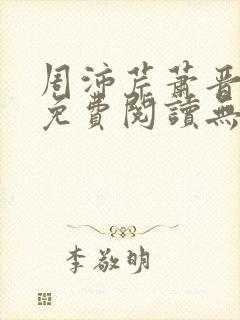 周沛芹蕭晋
免費閱讀無
李敬明